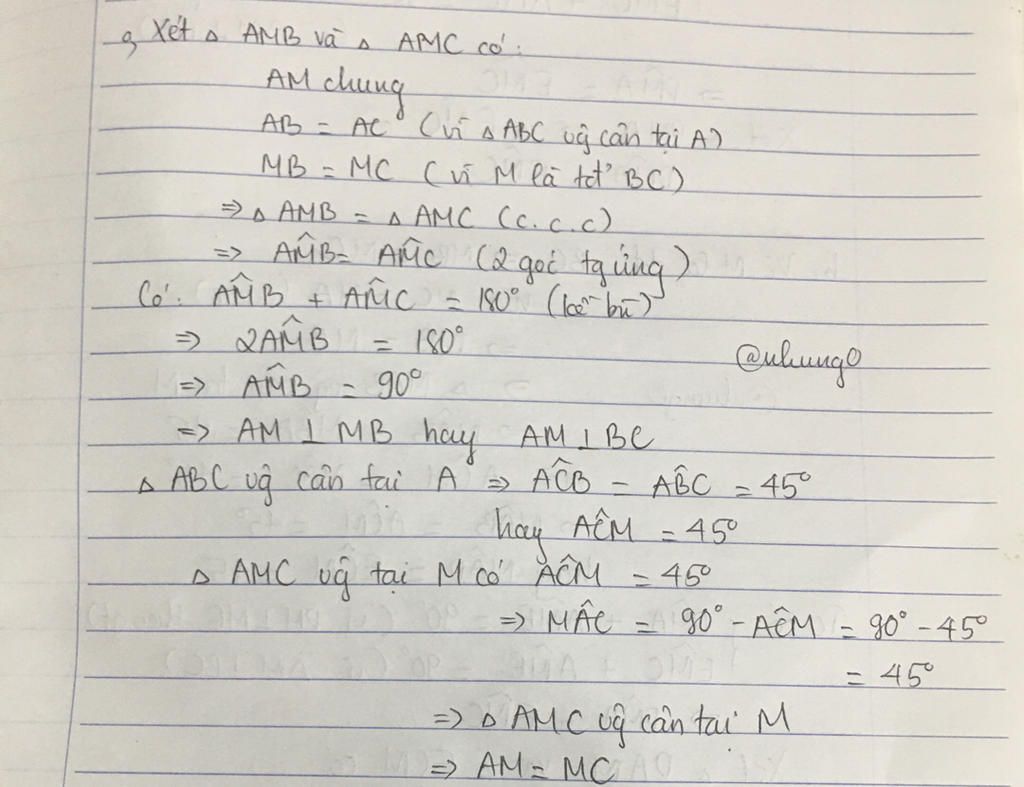 a, Xét △ AMB và △ AMC có:
AM chung
AB = AC (vì △ ABC vg cân tại A)
MB = MC (vì M là tđ' BC)
⇒ △ AMB = △ AMC (c.c.c)
⇒ AM̂B = AM̂C (2 góc tg ứng)
Có: AM̂B + AM̂C = 180° (kề bù)
⇒ 2AM̂B = 180°
@nhung0
⇒ AM̂B = 90°
⇒ AM ⊥ MB hay AM ⊥ BC
△ ABC vg cân tại A ⇒ AĈB = AB̂C = 45°
hay AĈM = 45°
△ AMC vg tại M có AĈM = 45°
⇒ MÂC = 90° - AĈM = 90° - 45°
= 45°
⇒ △ AMC vg cân tại M
⇒ AM = MC